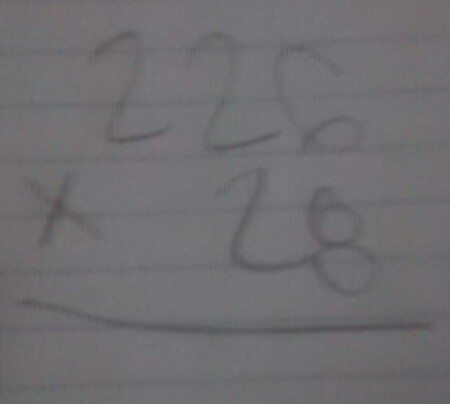 226
× 28